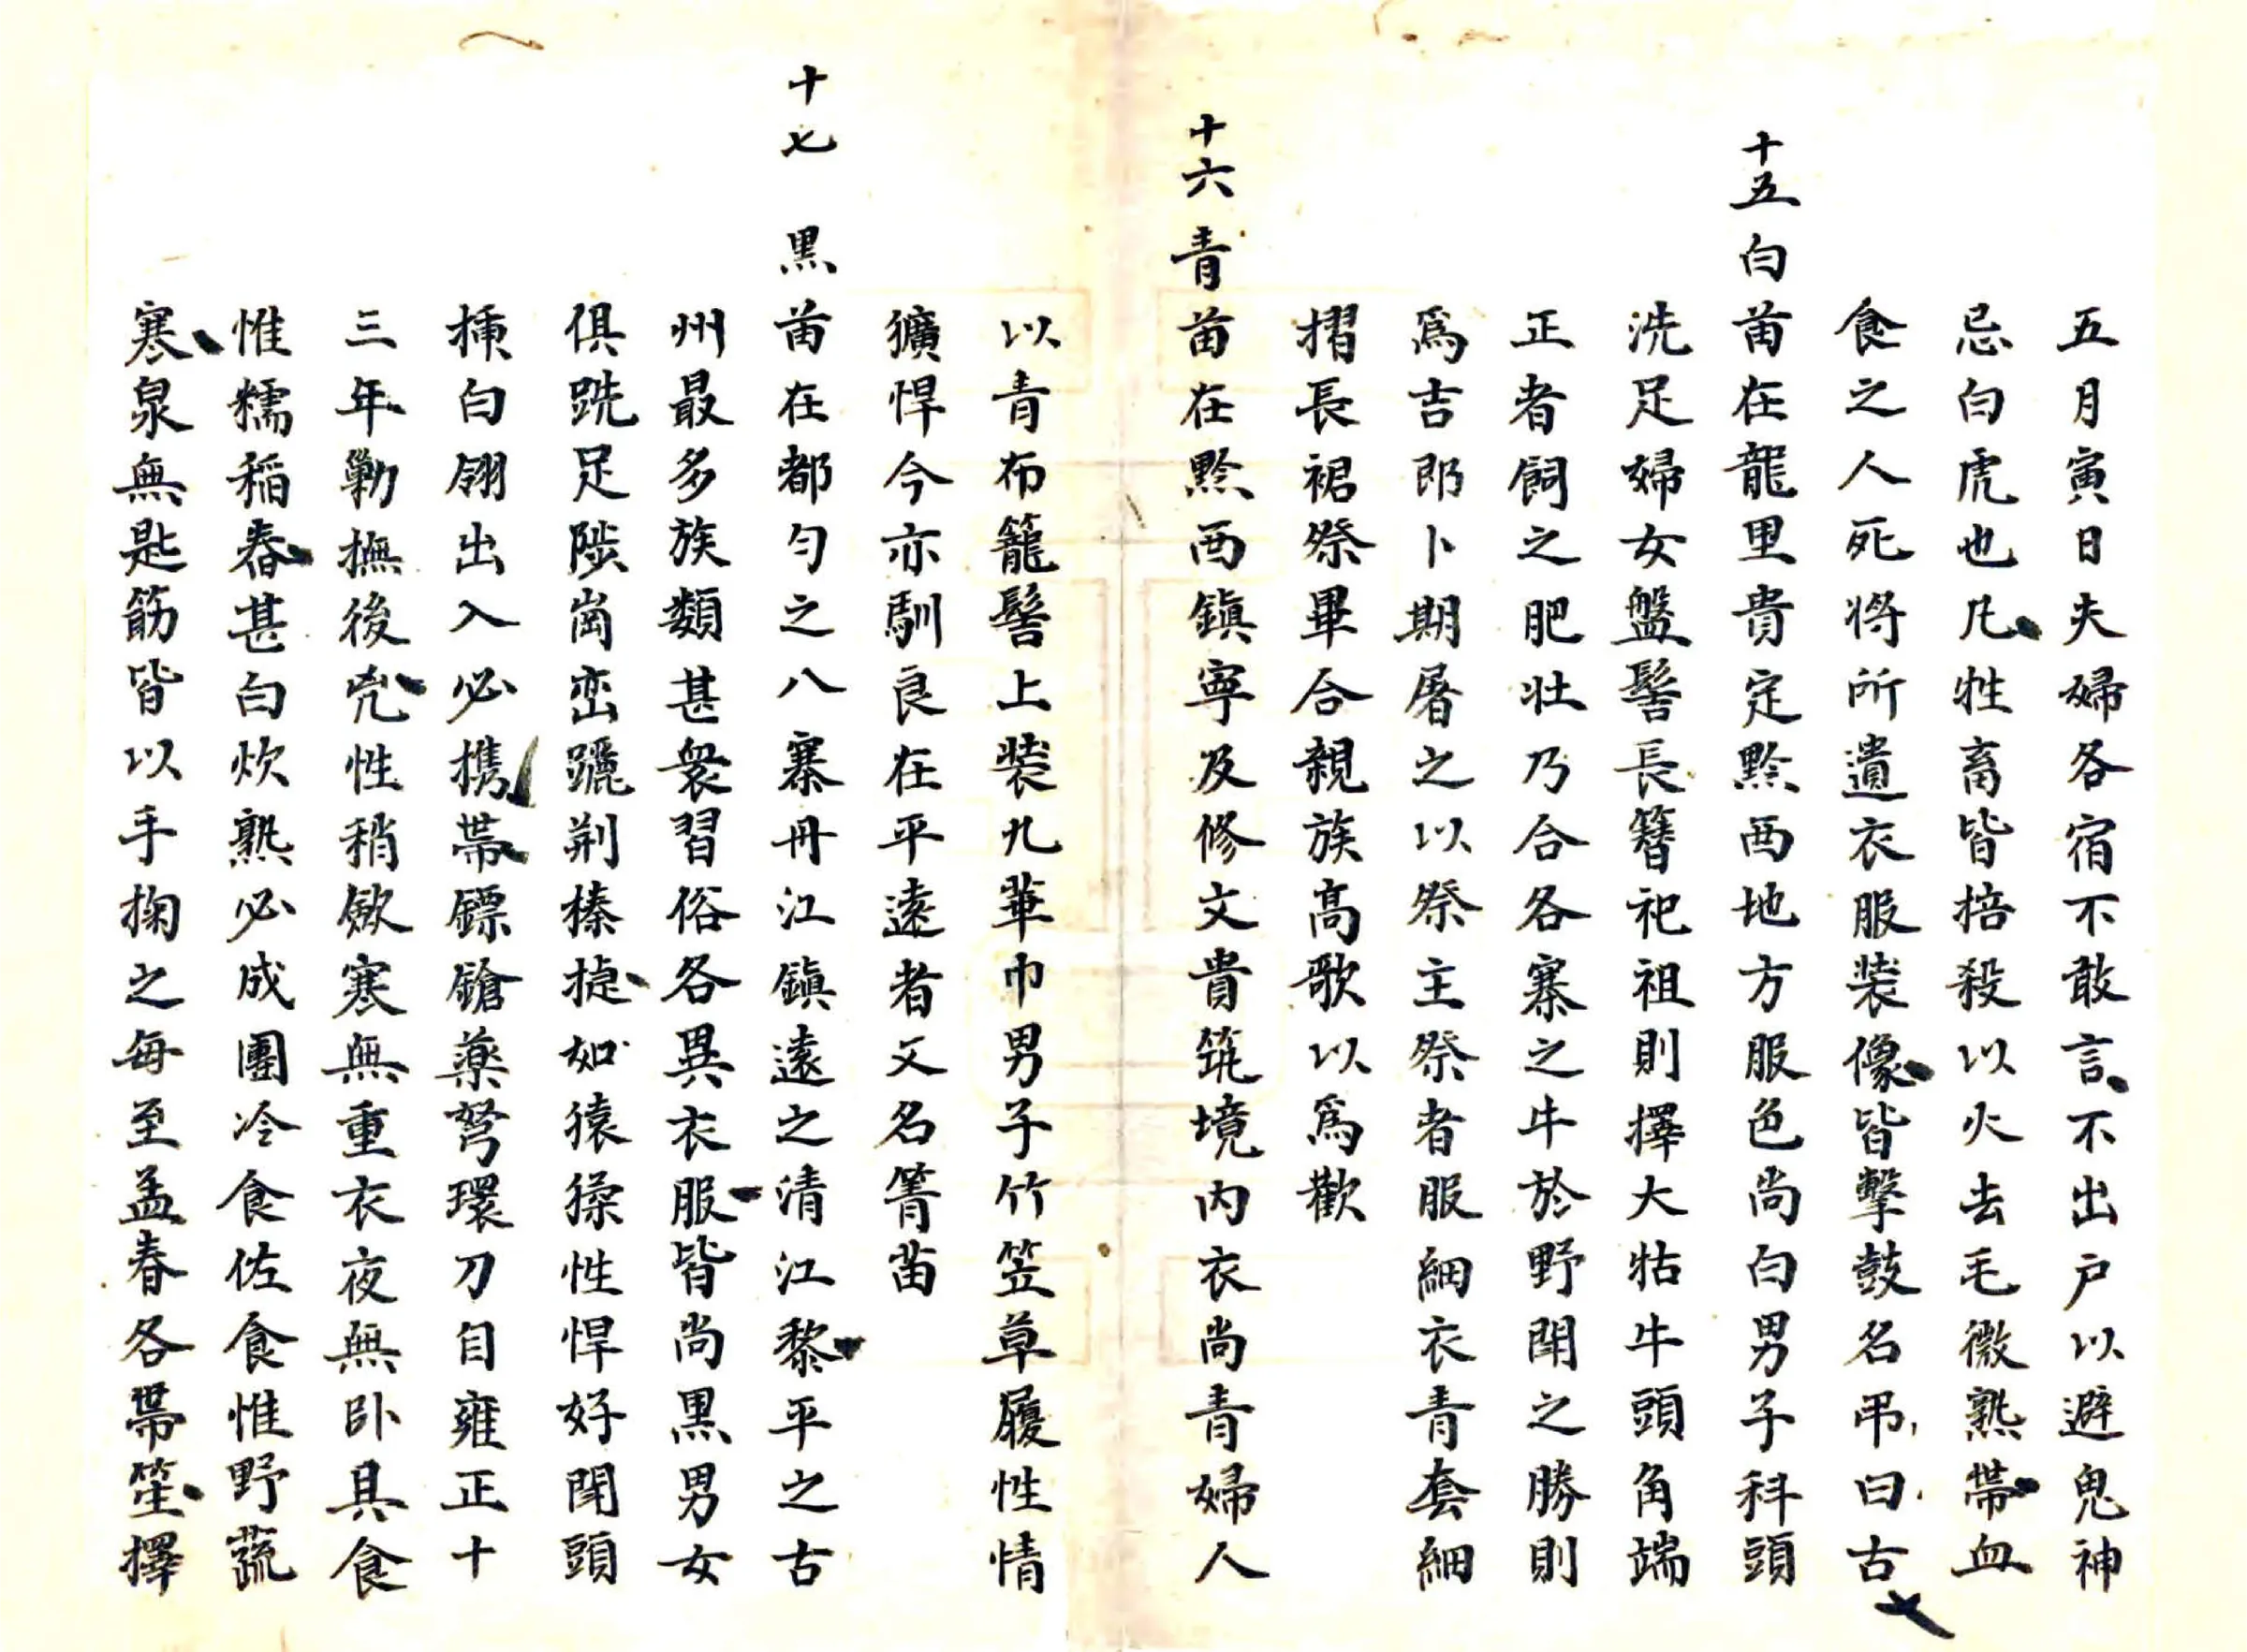 五月寅日夫婦各宿不敢言不出户以避鬼神
忌白虎也凡牲畜皆掊殺以火去毛微熟帶血
食之人死将所遺衣服装像皆擊鼓名吊曰古
十五白苗在龍里貴定黔西地方服色尚白男子科頭
洗足婦女盤髻長簪祀祖則擇大牯牛頭角端
正者飼之肥壯乃合各寨之牛於野鬥之勝則
爲吉郎卜期屠之以祭主祭者服細衣青套細
摺長裙祭畢合親族高歌以爲歡
十六青苗在黔西鎮寧及修文貴筑境内衣尚青婦人
以青布籠髻上装九華巾男子竹笠草履性情
獷悍今亦馴良在平遠者又名箐苗
十七黑苗在都匀之八寨丹江鎮遠之清江黎平之古
州最多族類甚衆習俗各異衣服皆尚黑男女
俱跣足陟崗巒躧荆榛捷如猿猱性悍好鬥頭
揷白翎出入必携帶鏢鎗藥弩環刀自雍正十
三年勦撫後兇性稍歛寒無重衣夜無卧具食
惟糯稻舂甚白炊熟必成團冷食佐食惟野蔬
寒泉無匙筯皆以手掬之每至孟春各帶笙擇